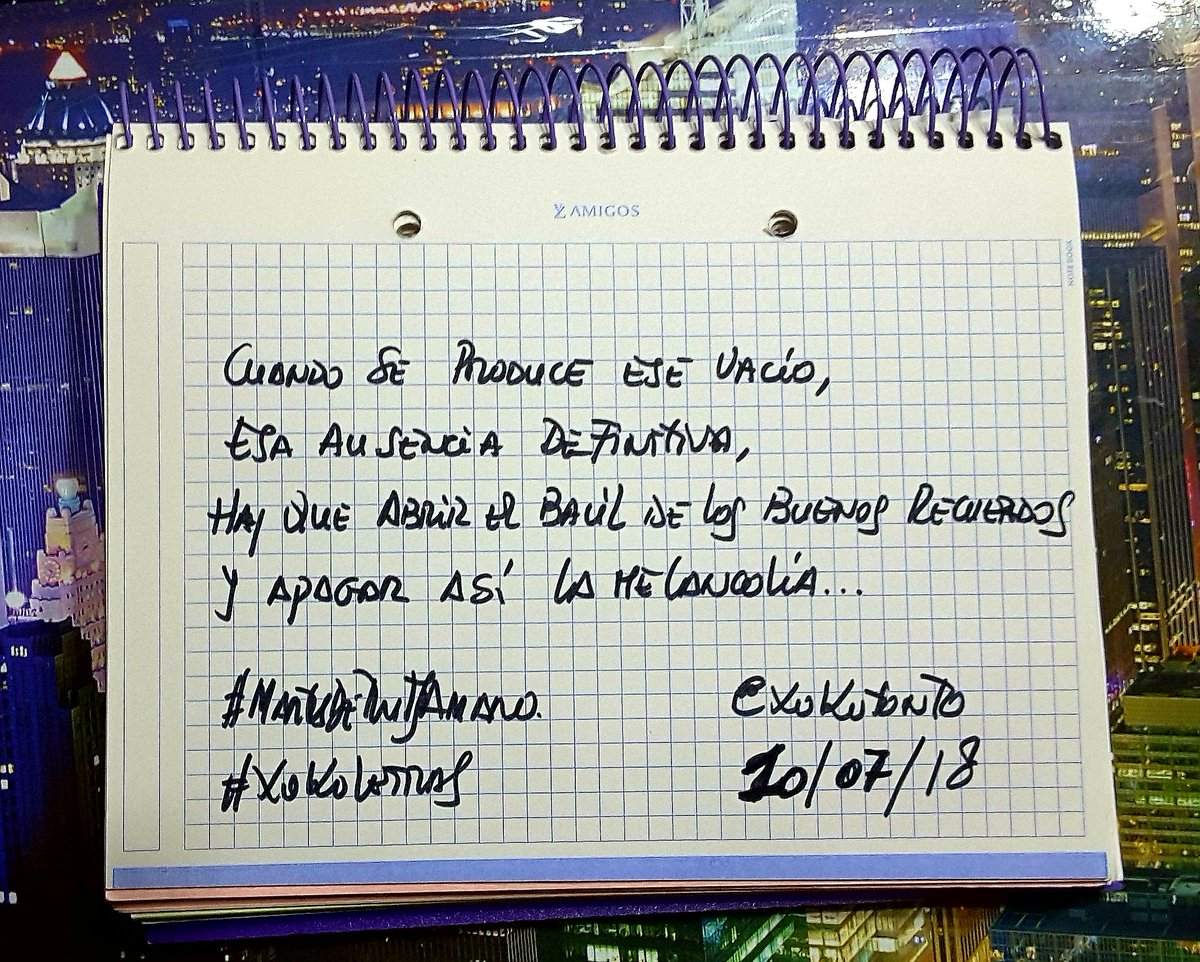 AMIGOS
NOTEBOOK
CUANDO SE PRODUCE ESE VACÍO,
ESA AUSENCIA DEFINITIVA,
HAY QUE ABRIR EL BAÚL DE LOS BUENOS RECUERDOS
Y APAGAR ASÍ LA MELANCOLÍA...
#MartesDeTuitAMano.
@XOKOTONTO
#XOKOLETRAS
10/07/18